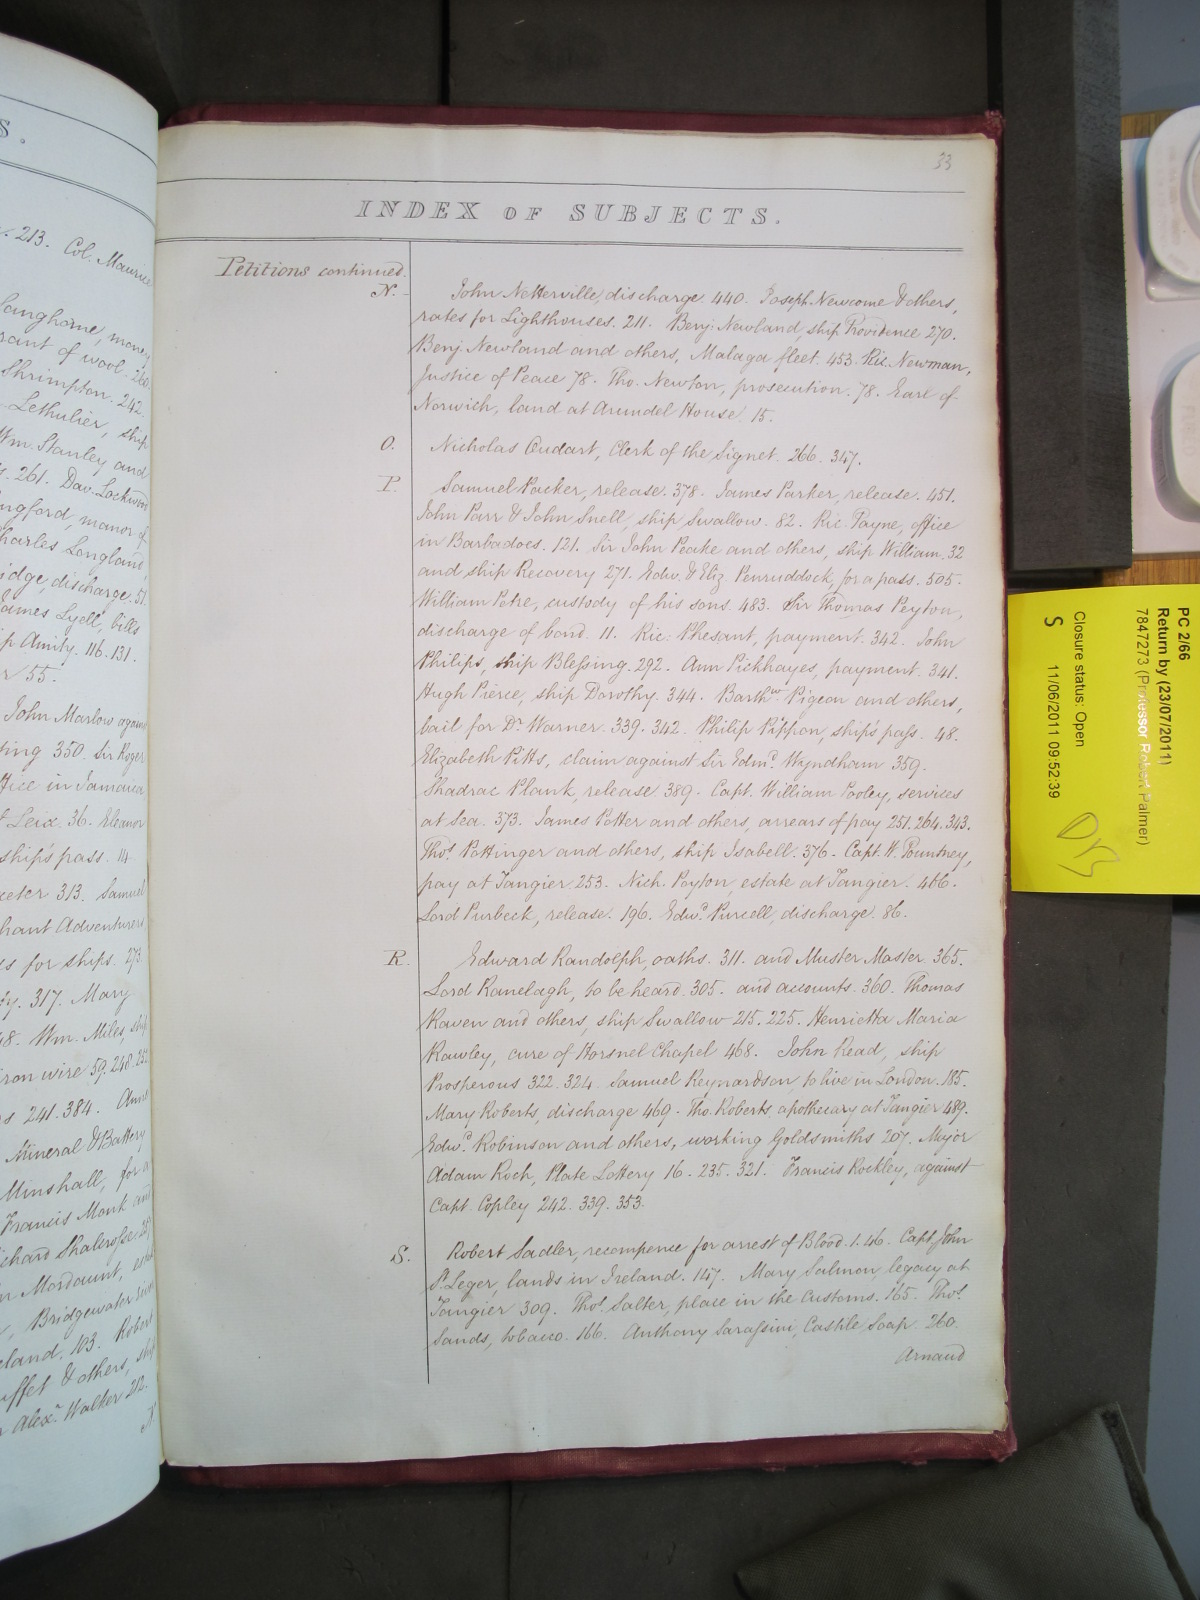 S.
. 213. Col. Maurice
Langhorne, money
rant of wool. 260
Shrimpton. 242.
Lethulier, ship
Wm. Stanley and
s. 261. Dav. Lockwin
ngford, manor of
harles Longland,
idge, discharge. 51.
James Lyell, bills
p Amity. 116. 131.
r 55.
John Marlow against
ting 350. Sir Roger
ffice in Jamaica
t Leix. 36. Eleanor
ship's pass. 14
xeter 313. Samuel
hant Adventurers
es for ships. 273
by. 317. Mary
48. Wm. Miles, ship
iron wire 59. 248. 252
s 241. 384. Anne
Mineral & Battery
Minshall, for a
Francis Monk and
ichard Shalcrosse
n Mordaunt,
, Bridgewater
eland. 103. Robert
uffet & others, ship
n Alexr. Walker 212.
N.
33
INDEX OF SUBJECTS.
Petitions continued.
N. John Netterville, discharge. 440. Joseph Newcome & others,
rates for Lighthouses. 211. Benj. Newland, ship Providence 270.
Benj. Newland and others, Malaga fleet. 453. Ric. Newman,
Justice of Peace 78. Tho. Newton, prosecution. 78. Earl of
Norwich, land at Arundel House. 15.
O. Nicholas Oudart, Clerk of the Signet. 266. 347.
P. Samuel Packer, release. 378. James Parker, release. 451.
John Parr & John Snell, ship Swallow. 82. Ric. Payne, office
in Barbadoes. 121. Sir John Peake and others, ship William. 32
and ship Recovery 271. Edw. & Eliz. Penruddock, for a pass. 505.
William Petre, custody of his sons. 483. Sir Thomas Peyton,
discharge of bond. 11. Ric: Phesant, payment. 342. John
Philips, ship Blessing. 292. Ann Pickhayes, payment. 341.
Hugh Pierce, ship Dorothy. 344. Barthw. Pigeon and others,
bail for Dr. Warner. 339. 342. Philip Pippon, ship's pass. 48.
Elizabeth Pitts, claim against Sir Edmd. Wyndham 359.
Shadrac Plank, release 389. Capt. William Pooley, services
at sea. 373. James Potter and others, arrears of pay 251. 264. 343.
Thos. Pottinger and others, ship Isabell. 376. Capt. W. Pountney,
pay at Tangier 253. Nich. Poyton, estate at Tangier. 466.
Lord Purbeck, release. 196. Edwd. Purcell, discharge. 86.
R. Edward Randolph, oaths. 311. and Muster Master. 365.
Lord Ranelagh, to be heard. 305. and accounts. 360. Thomas
Raven and others, ship Swallow 215. 225. Henrietta Maria
Rawley, cure of Horsnel Chapel 468. John Read, ship
Prosperous 322. 324. Samuel Reynardson, to live in London. 185.
Mary Roberts, discharge 469. Tho. Roberts, apothecary at Tangier 489.
Edwd. Robinson and others, working Goldsmiths 207. Major
Adam Roch, Plate Lottery 16. 235. 321. Francis Rockley, against
Capt. Copley 242. 339. 353.
S. Robert Sadler, recompence for arrest of Blood. 1. 46. Capt. John
St. Leger, lands in Ireland. 147. Mary Salmon, legacy at
Tangier 309. Thos. Salter, place in the Customs. 165. Thos.
Sands, tobacco. 166. Anthony Sarassini, Castile Soap. 260.
Arnaud
PC 2/66
Return by (23/07/2011)
7847273 (Professor Robert Palmer)
Closure status: Open
S 11/06/2011 09:52:39